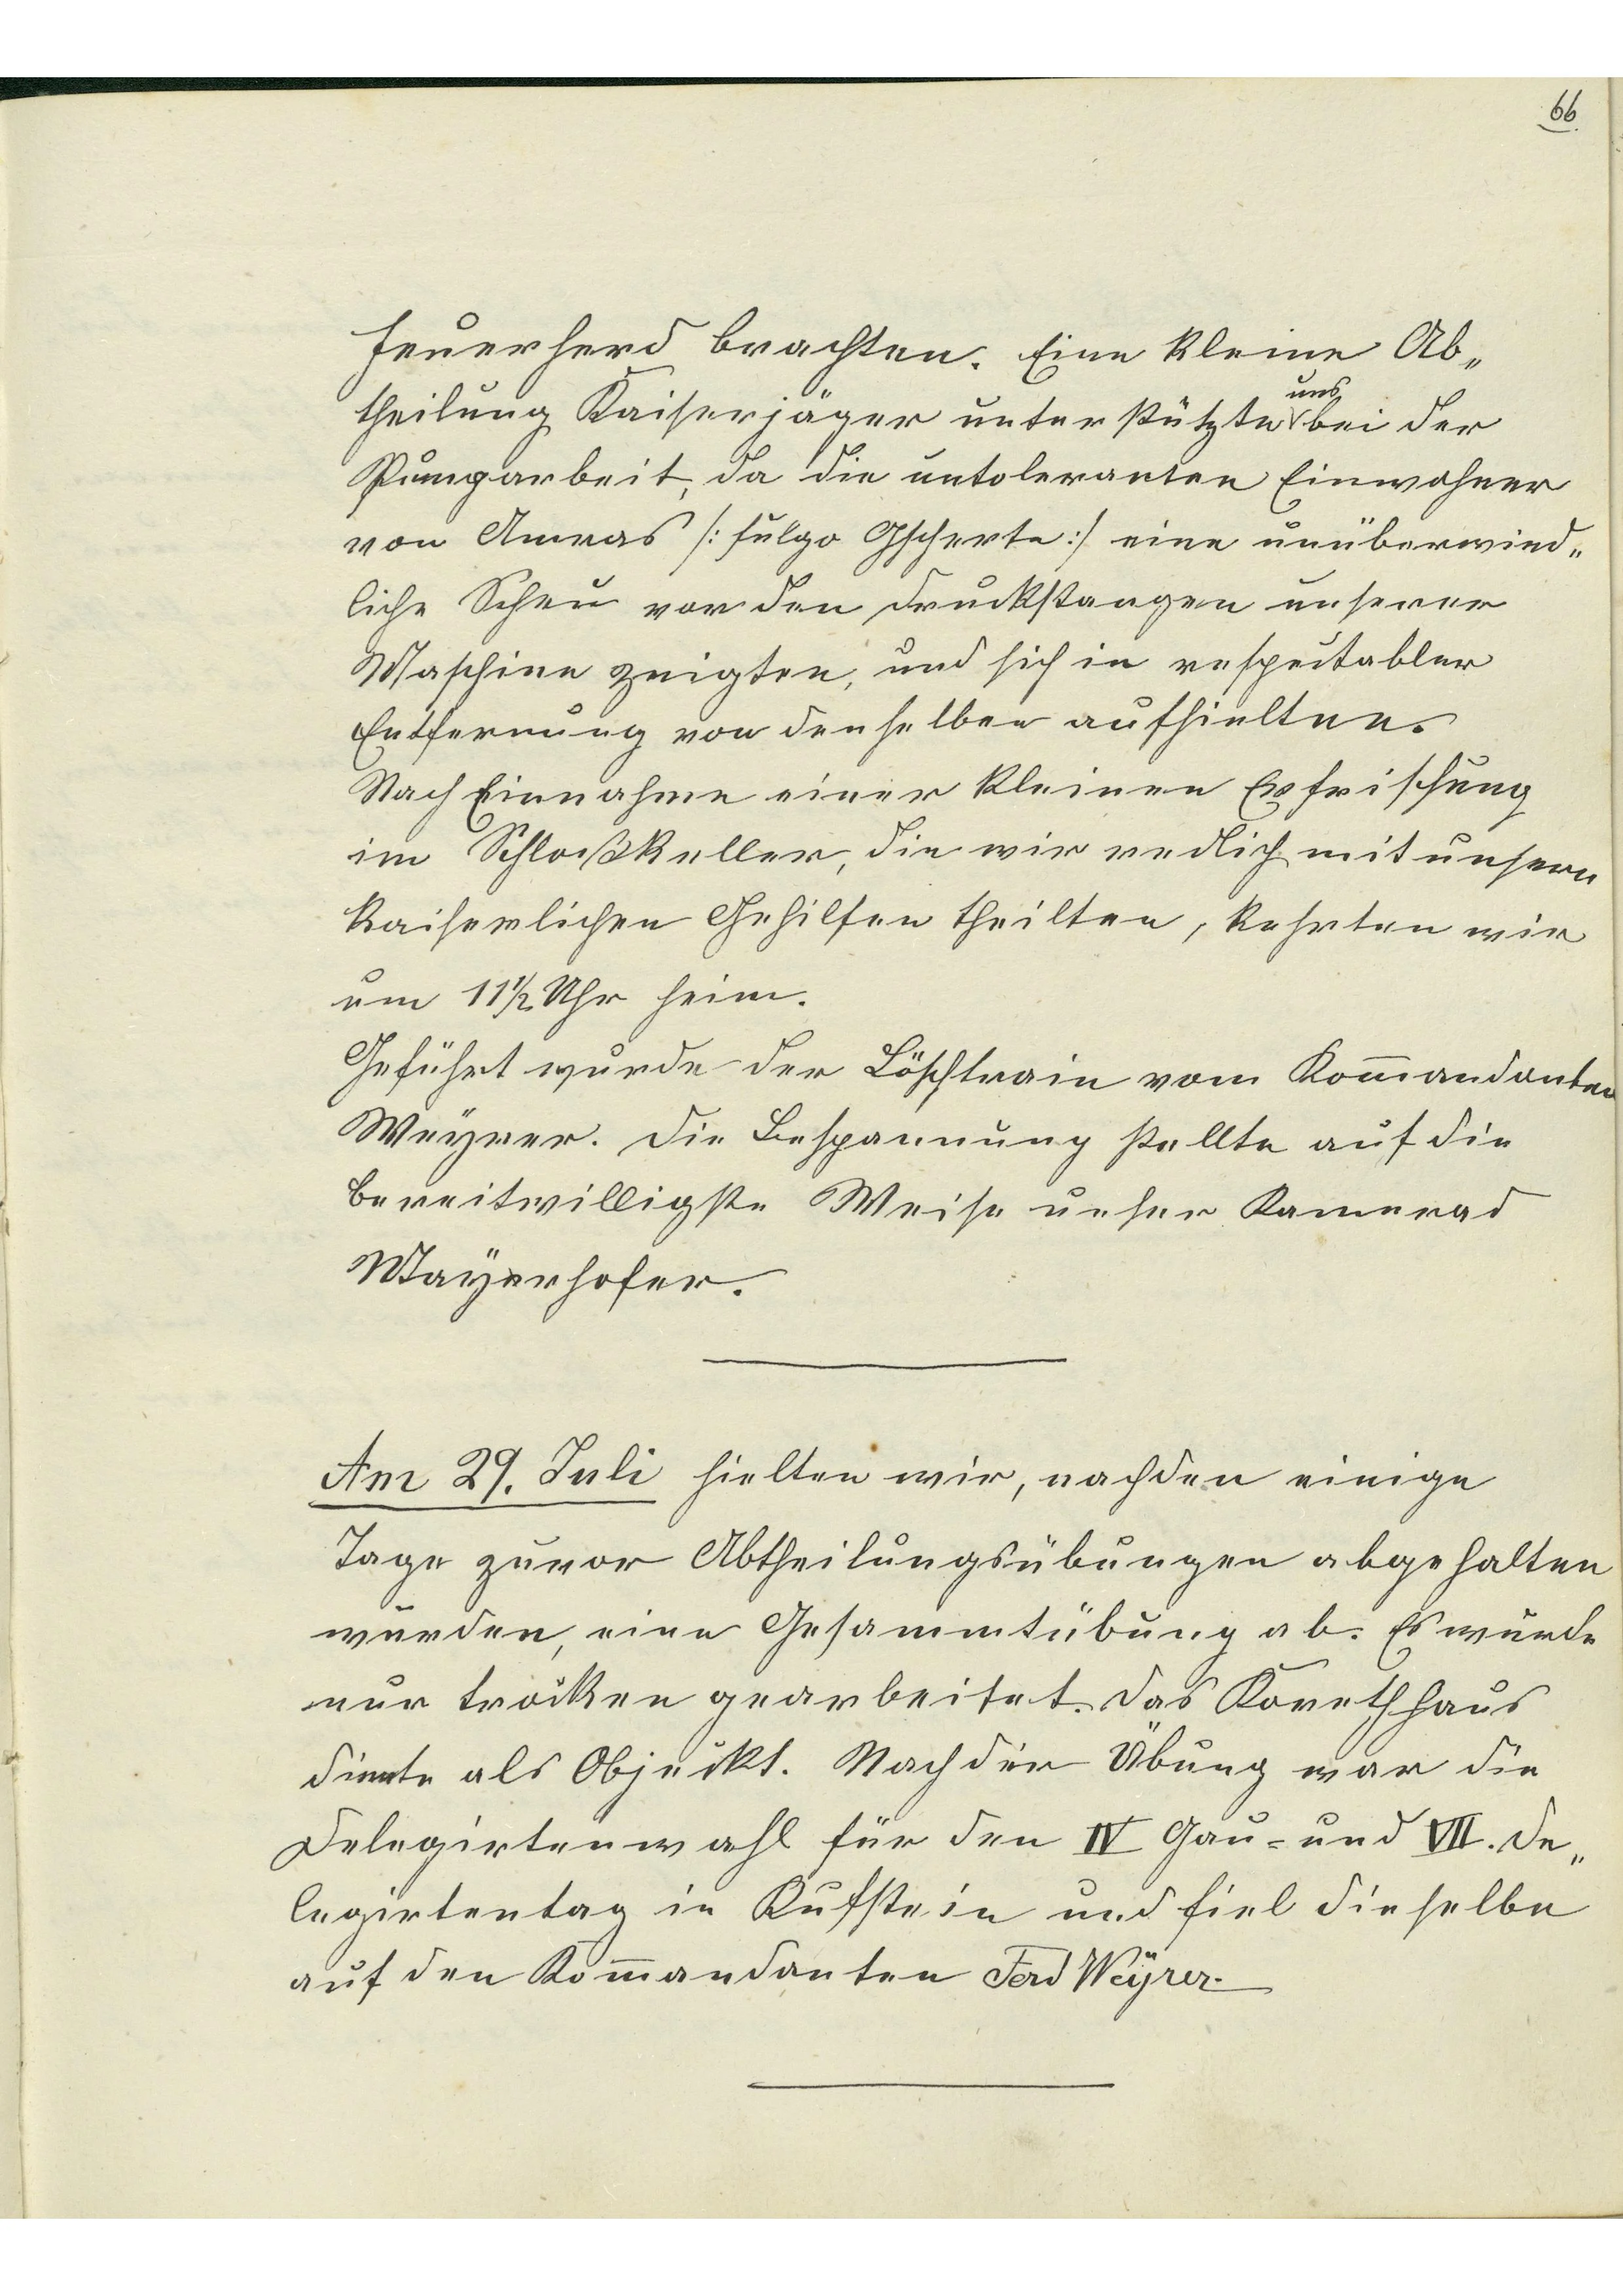 66
Feuerherd brachten. Eine kleine Ab„
theilung Kaiserjäger unterstützte uns bei der
Pumparbeit, da die untoleranten Einwohner
von Amras /: fulgo Gscherte :/ eine unüberwind„
liche Scheu vor den Druckstangen unserer
Maschine zeigten, und sich in respectabler
Entfernung von denselben aufhielten.
Nach Einnahme einer kleinen Erfrischung
im Schloßkeller, die wir redlich mit unsern
kaiserlichen Gehilfen theilten, kehrten wir
um 11½ Uhr heim.
Geführt wurde der Löschtrain vom Kom̅andanten
Weÿrer. Die Bespannung stellte auf die
bereitwilligste Weise unser Kamerad
Maÿerhofer.
Am 29. Juli hielten wir, nachden einige
Tage zuvor Abtheilungsübungen abgehalten
wurden, eine Gesammtübung ab. Es wurde
nur trocken gearbeitet. Das Korethhaus
diente als Objeckt. Nach der Übung war die
Delegirtenwahl für den IV Gau- und VII. De„
legirtentag in Kufstein und fiel dieselbe
auf den Kom̅andanten Ferd Weÿrer.